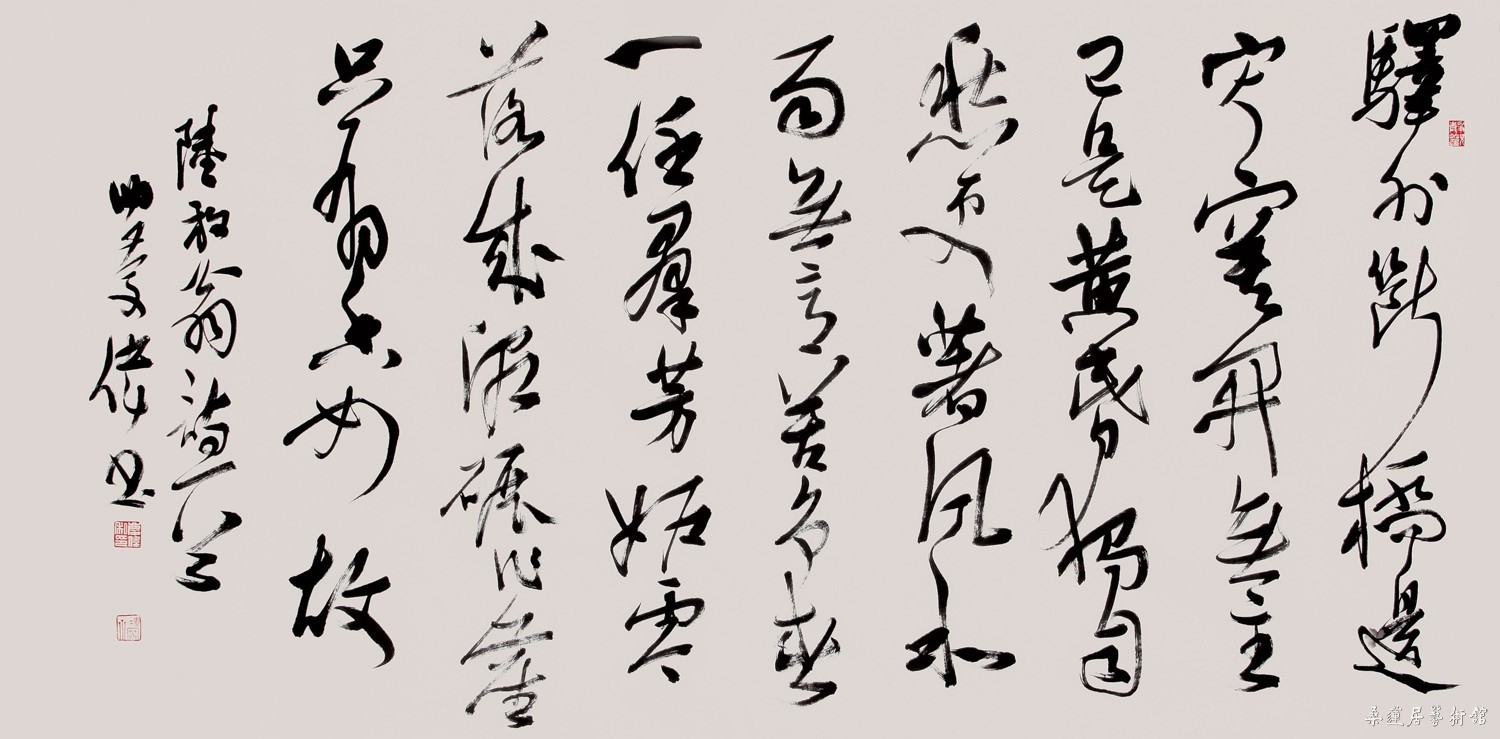 驛外斷橋邊
寂寞開無主
已是黃昏獨自
愁更著風和
雨無意苦爭春
一任羣芳妬零
落成泥碾作塵
只有香如故
陸放翁詩一首
偉书
桑蓮居藝術館